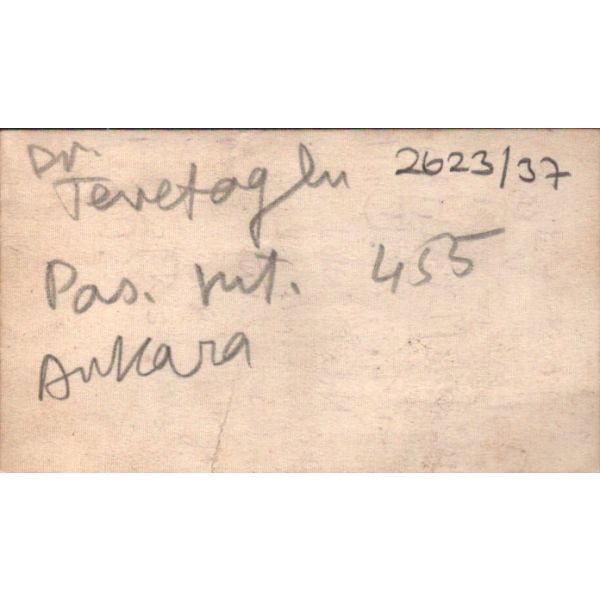 Dr. 2623/37
Tevetoglu
Pas. kut. 455
Ankara